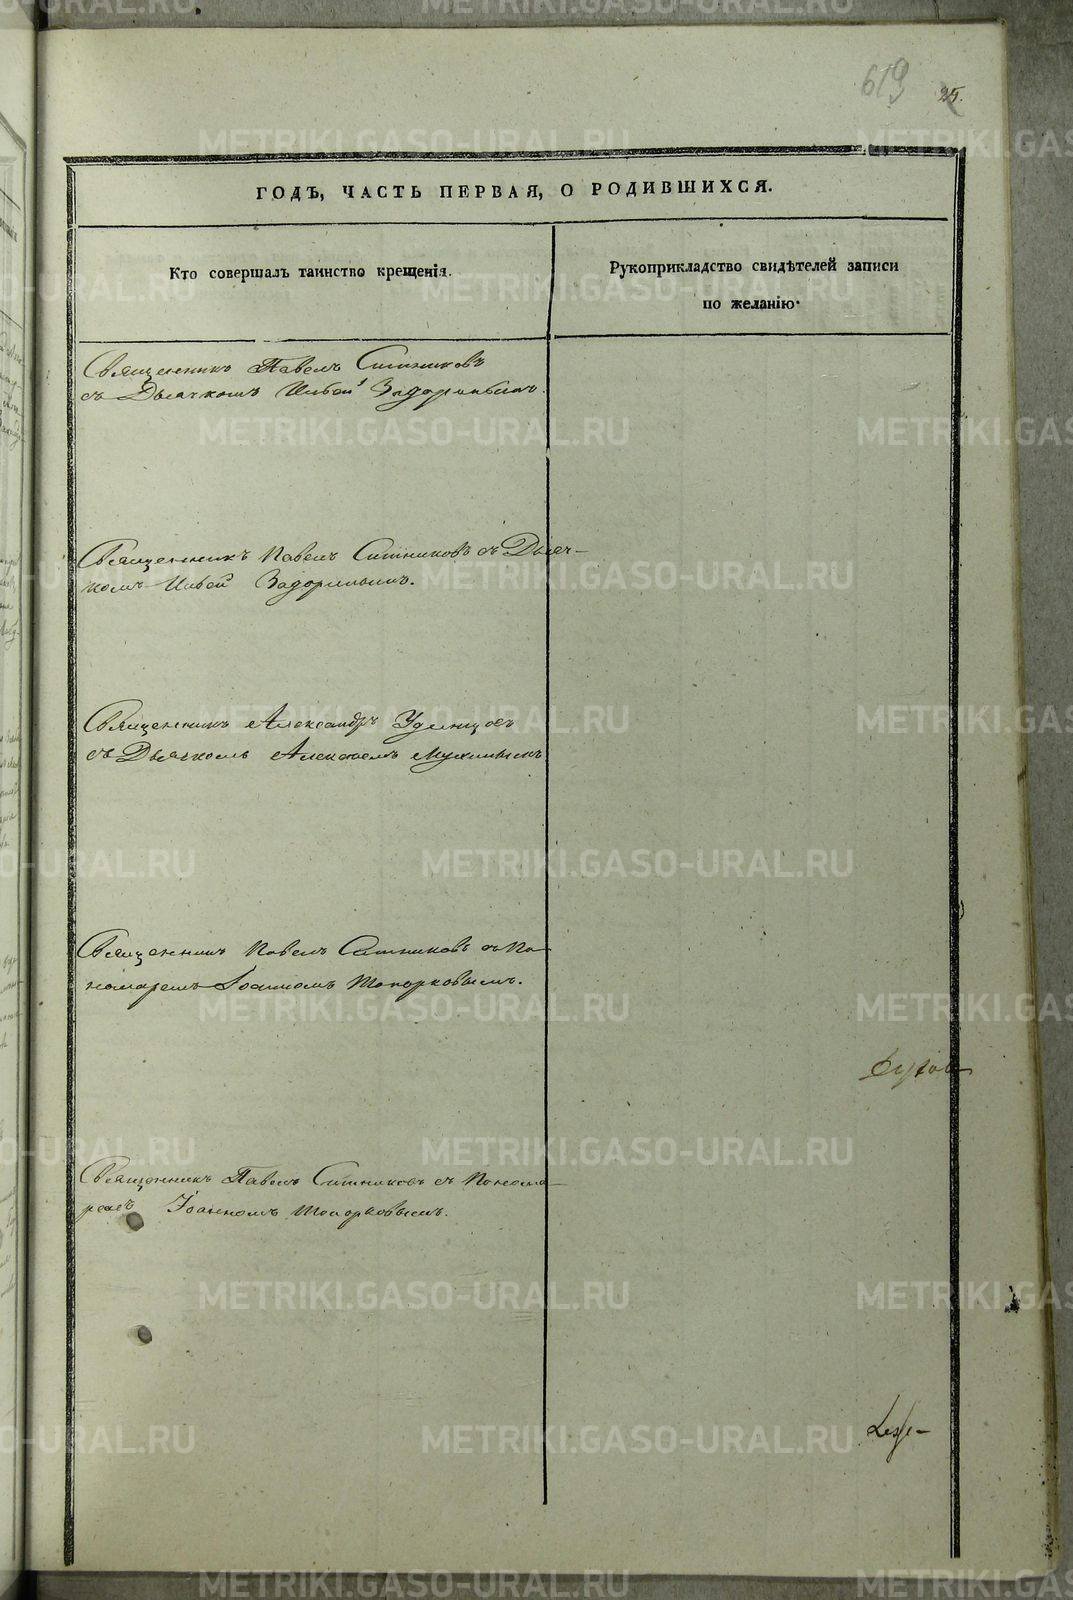 619
25.
ГОДЪ, ЧАСТЬ ПЕРВАЯ, О РОДИВШИХСЯ.
Кто совершалъ таинство крещенія.
Рукоприкладство свидѣтелей записи
по желанію.
Священникъ Павелъ Ситниковъ
съ Дьячкомъ Ивой Задоринымъ.
Священникъ Павелъ Ситниковъ съ Дьяч-
комъ Ивой Задоринымъ.
Священникъ Александръ Удинцовъ
съ Дьячкомъ Алексѣемъ
Священникъ Павелъ Ситниковъ съ По-
номаремъ Іоанномъ Топорковымъ.
Священникъ Павелъ Ситниковъ съ Понома-
ремъ Іоанномъ Топорковымъ.
METRIKI.GASO-URAL.RU